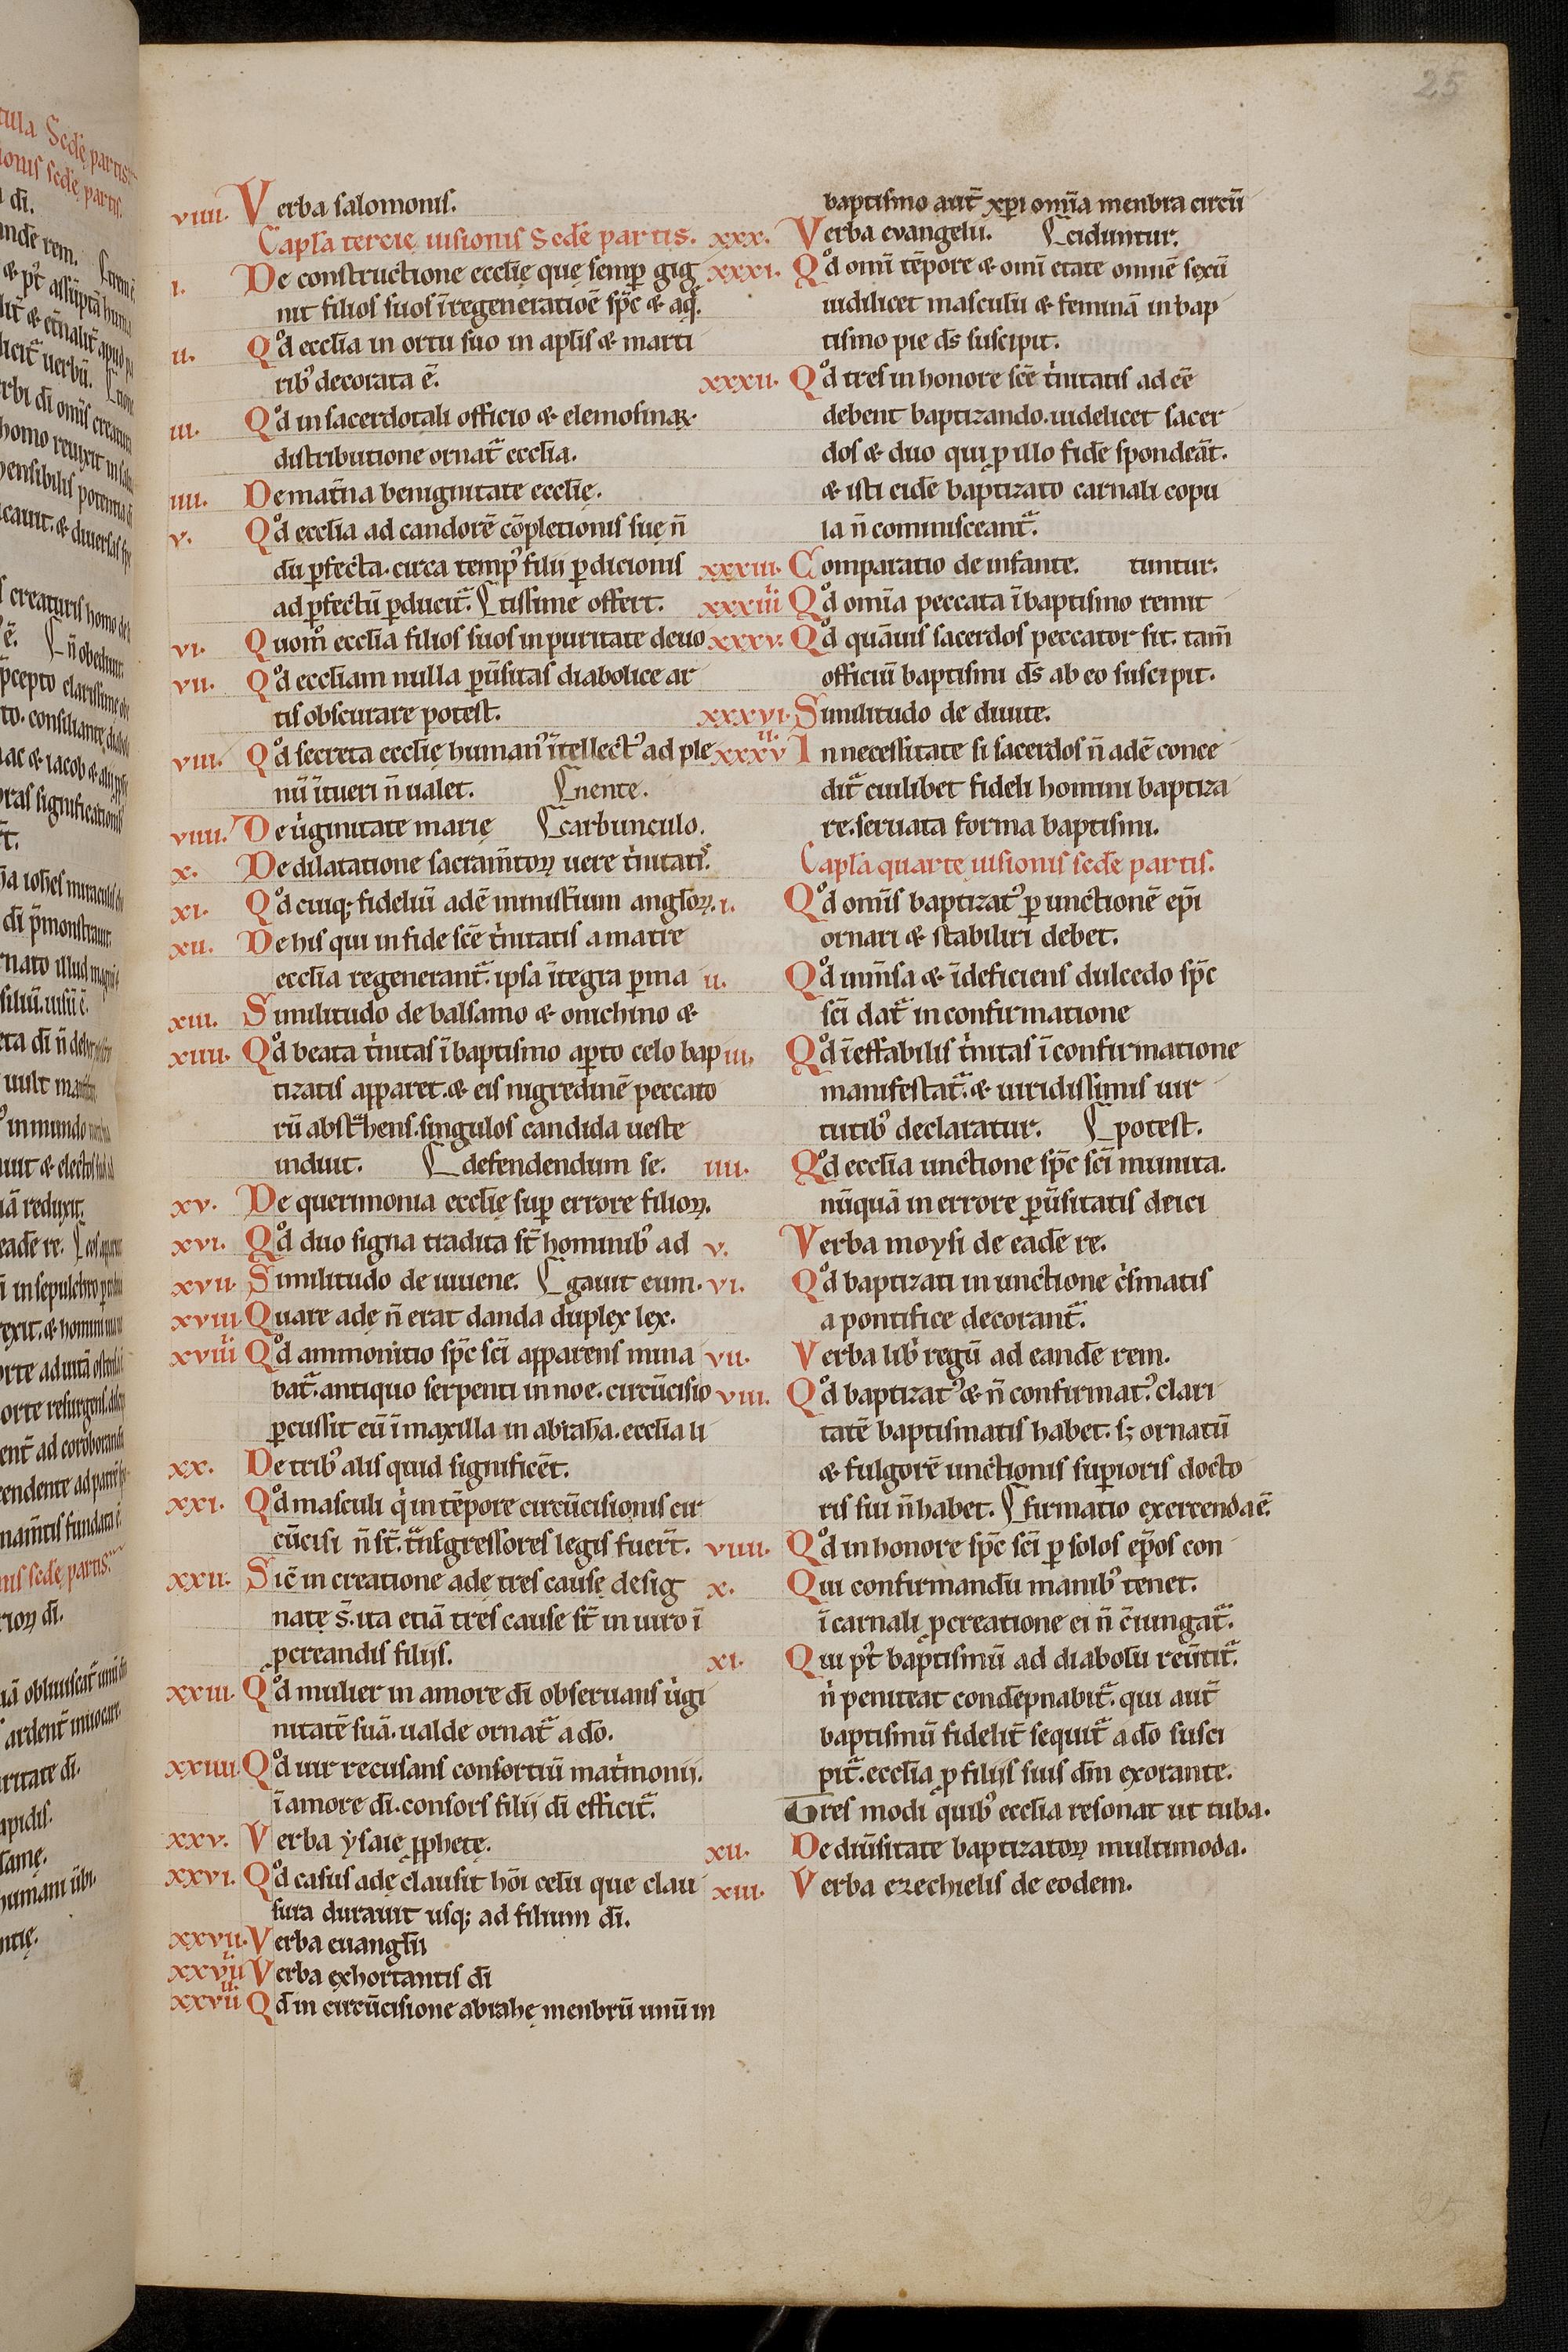 25
viiii. Verba salomonis.
Capl̄a tercie uisionis Scd̄e partis.
i. De constructione eccl̄ię quę semꝑ gig
nit filios suos īregeneratioē sp̄c & aq̄.
ii. Qd̊ eccl̄ia in ortu suo in apl̄is & marti
ribꝰ decorata ē.
iii. Qd̊ in sacerdotali officio & elemosinaꝝ
distributione ornatᷓ eccl̄ia.
iiii. De mat̄na benignitate eccl̄ię.
v. Qd̊ eccl̄ia ad candorē cōpletionis suę n̄
dū ꝑfecta. circa tempꝰ filii ꝑdicionis
ad ꝑfectū ꝑducitᷓ. tissime offert.
vi. Quom̊ eccl̄ia filios suos in puritate deuo
vii. Qd̊ eccl̄iam nulla ꝑūsitas diabolice ar
tis obscurare potest.
viii. Qd̊ secreta eccl̄ię humanꝰ ītellectꝰ ad ple
nū ītueri n̄ ualet. nente.
viiii. De ůginitate marię carbunculo.
x. De dilatatione sacram̄toꝝ uere tͥnitatis.
xi. Qd̊ cuiq; fideliū adē minist̄ium angl̄oꝝ.
xii. De his qui in fide scē tͥnitatis a matre
eccl̄ia regenerantᷓ. ipsa ītegra ꝑma
xiii. Similitudo de balsamo & onichino &
xiiii. Qd̊ beata tͥnitas ī baptismo aꝑto celo bap
tizatis apparet. & eis nigredinē peccato
rū abstᷓhens. singulos candida ueste
induit. defendendum se.
xv. De querimonia eccl̄ię suꝑ errore filioꝝ.
xvi. Qd̊ duo signa tradita st̄ hominibꝰ ad
xvii. Similitudo de iuuene. gauit eum.
xviii. Quare adę n̄ erat danda duplex lex.
xviiii Qd̊ ammonitio sp̄c sc̄i apparens mina
batᷓ. antiquo serpenti in noe. circūcisio
ꝑcussit eū ī maxilla in abraha. eccl̄ia li
xx. De tribꝰ alis quid significēt.
xxi. Qd̊ masculi qͥ in tēpore circūcisionis cir
cūcisi n̄ st̄. tᷓnsgressores legis fuer̄t.
xxii. Sic̄ in creatione adę tres cause desig
natę s̄. ita etiā tres cause st̄ in uiro ī
ꝓcreandis filijs.
xxiii. Qd̊ mulier in amore dī obseruans ůgi
nitatē suā. ualde ornatᷓ a dō.
xxiiii. Qd̊ uir recusans consortiū matͥmonij.
ī amore dī. consors filij dī efficitᷓ.
xxv. Verba ẏsaie ꝓphete.
xxvi. Qd̊ casus adę clausit hōi celū que clau
sura durauit usq; ad filium dī.
xxvii. Verba euangl̄ii
xxviii Verba exhortantis dī
xxviiii Qd̄ in circūcisione abrahę menbrū unū in
baptismo aut̄ xp̄i omīa menbra circū
xxx. Verba evangelii. ciduntur.
xxxi. Qd̊ omī tēpore & omī etate omnē sexū
uidilicet masculū & feminā in bap
tismo pie ds̄ suscipit.
xxxii. Qd̊ tres in honore scē tͥnitatis ad eē
debent baptizando. uidelicet sacer
dos & duo qui ꝓ illo fidē spondeāt.
& isti eidē baptizato carnali copu
la n̄ commisceantᷓ.
xxxiii. Comparatio de infante. tuntur.
xxxiiii Qd̊ omīa peccata ī baptismo remit
xxxv. Qd̊ quāuis sacerdos peccator sit. tam̄
officiū baptismi ds̄ ab eo suscipit.
xxxvi. Similitudo de diuite.
xxxvii. In necessitate si sacerdos n̄ adē conce
ditᷓ cuilibet fideli homini baptiza
re. seruata forma baptismi.
Capl̄a quarte uisionis scd̄e partis.
i. Qd̊ omīs baptizatꝰ ꝑ unctionē ep̄i
ornari & stabiliri debet.
ii. Qd̊ inm̄sa & īdeficiens dulcedo sp̄c
sc̄i datᷓ in confirmatione
iii. Qd̊ īeffabilis tͥnitas ī confirmatione
manifestatᷓ. & uiridissimis uir
tutibꝰ declaratur. potest.
iiii. Qd̊ eccl̄ia unctione sp̄c sc̄i munita.
nūquā in errore ꝑūsitatis deici
v. Verba moysi de eadē re.
vi. Qd̊ baptizati in unctione cͥsmatis
a pontifice decorantᷓ.
vii. Verba libͥ regū ad eandē rem.
viii. Qd̊ baptizatꝰ & n̄ confirmatꝰ. clari
tatē baptismatis habet. sꝫ ornatū
& fulgorē unctionis suꝑioris docto
ris sui n̄ habet. firmatio exercenda ē.
viiii. Qd̊ in honore sp̄c sc̄i ꝑ solos ep̄os con
x. Qui confirmandū manibꝰ tenet.
ī carnali ꝓcreatione ei n̄ c̄iungatᷓ.
xi. Qui pͦt baptismū ad diabolū reūtitᷓ.
nͥ peniteat condēpnabitᷓ. qui aut̄
baptismū fidelit̄ sequitᷓ a dō susci
pitᷓ. eccl̄ia ꝓ filijs suis dm̄ exorante.
Tres modi quibꝰ eccl̄ia resonat ut tuba.
xii. De diūsitate baptizatoꝝ multimoda.
xiii. Verba ezechielis de eodem.
25